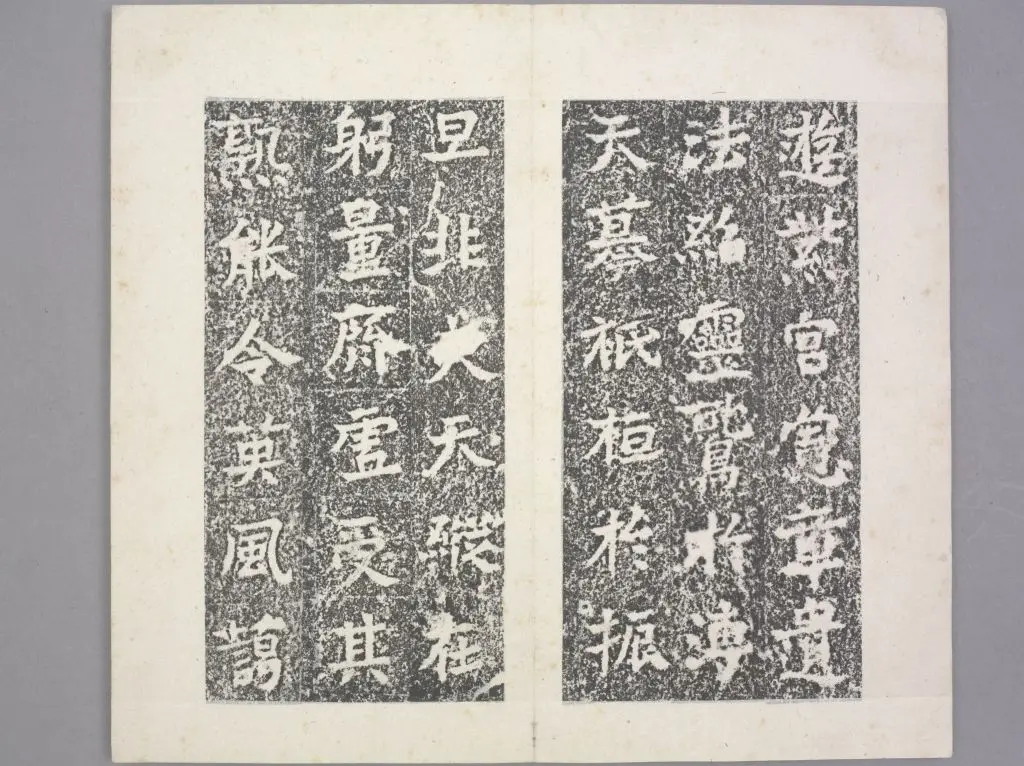 遊紫宮憲章遺
法紹靈鷲於溥
天慕祇桓於振
旦非夫天縱在
躬量齊虛受其
熟能令英風藹